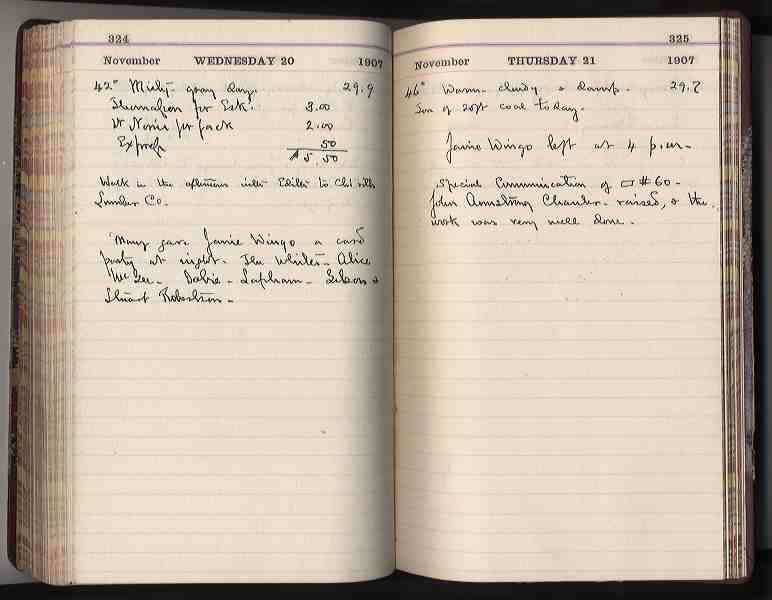 324
November WEDNESDAY 20 1907
42° Misty gray day. 29.9
for 3.00
for jack 2.00
50
$5.50
Work in the afternoon
Lumber Co.
Mary gave Janie Wingo a card
party at night. The Whites - Alice
McGee - Dabie - Lapham - &
Stuart Robertson -
325
November THURSDAY 21 1907
46° Warm - cloudy & damp. 29.7
of coal today.
Janie Wingo left at 4 p.m.
Special Communication of ▭ #60 -
John Armstrong Chanler - raised, & the
work was very well done -